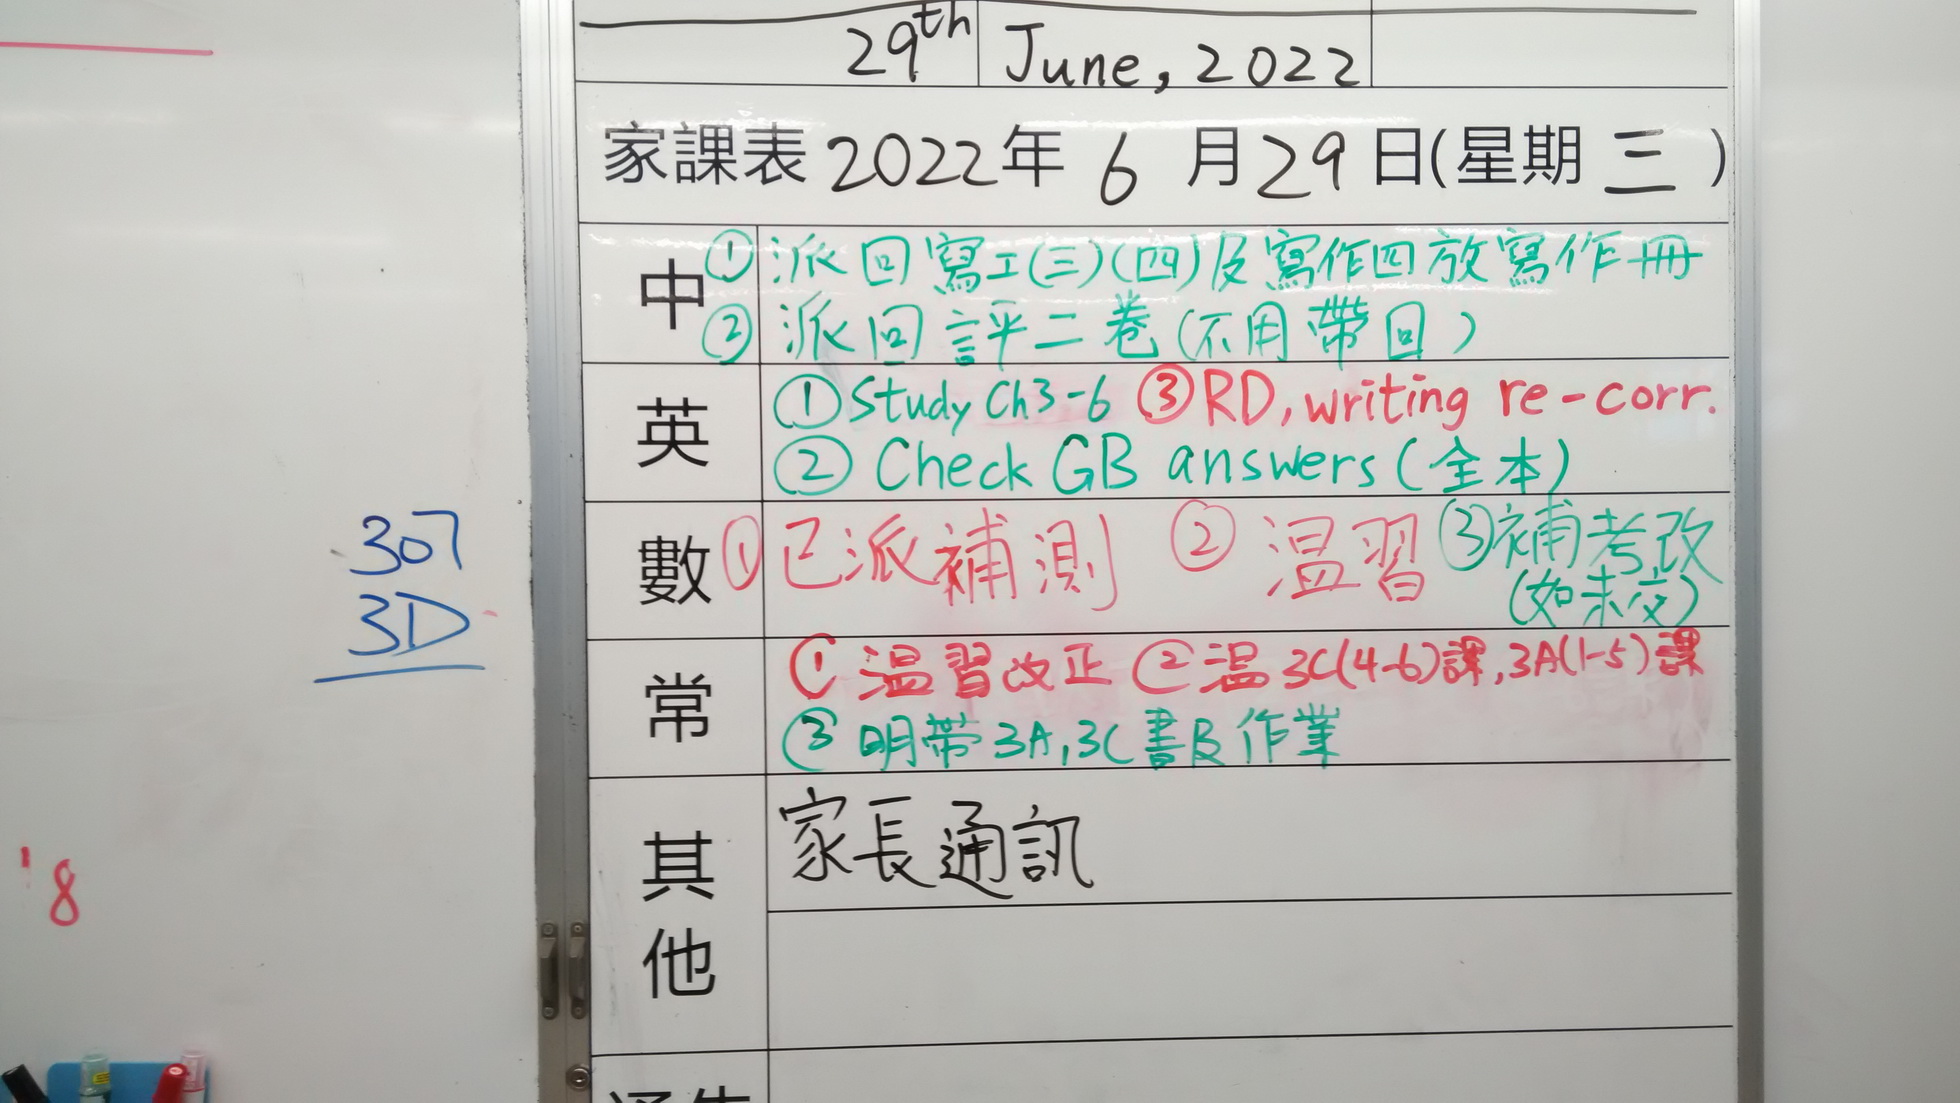 29th June, 2022
家課表 2022年 6 月 29 日(星期 三 )
中 ① 派回寫工(三)(四)及寫作四放寫作冊
② 派回評二卷(不用帶回)
英 ① Study Ch3-6 ③ RD, writing re-corr.
② Check GB answers (全本)
數 ① 已派補測 ② 温習 ③ 補考改
(如未交)
常 ① 温習改正 ② 温 3C(4-6)課, 3A(1-5)課
③ 明带 3A, 3C 書及作業
其他 家長通訊
307
3D
8